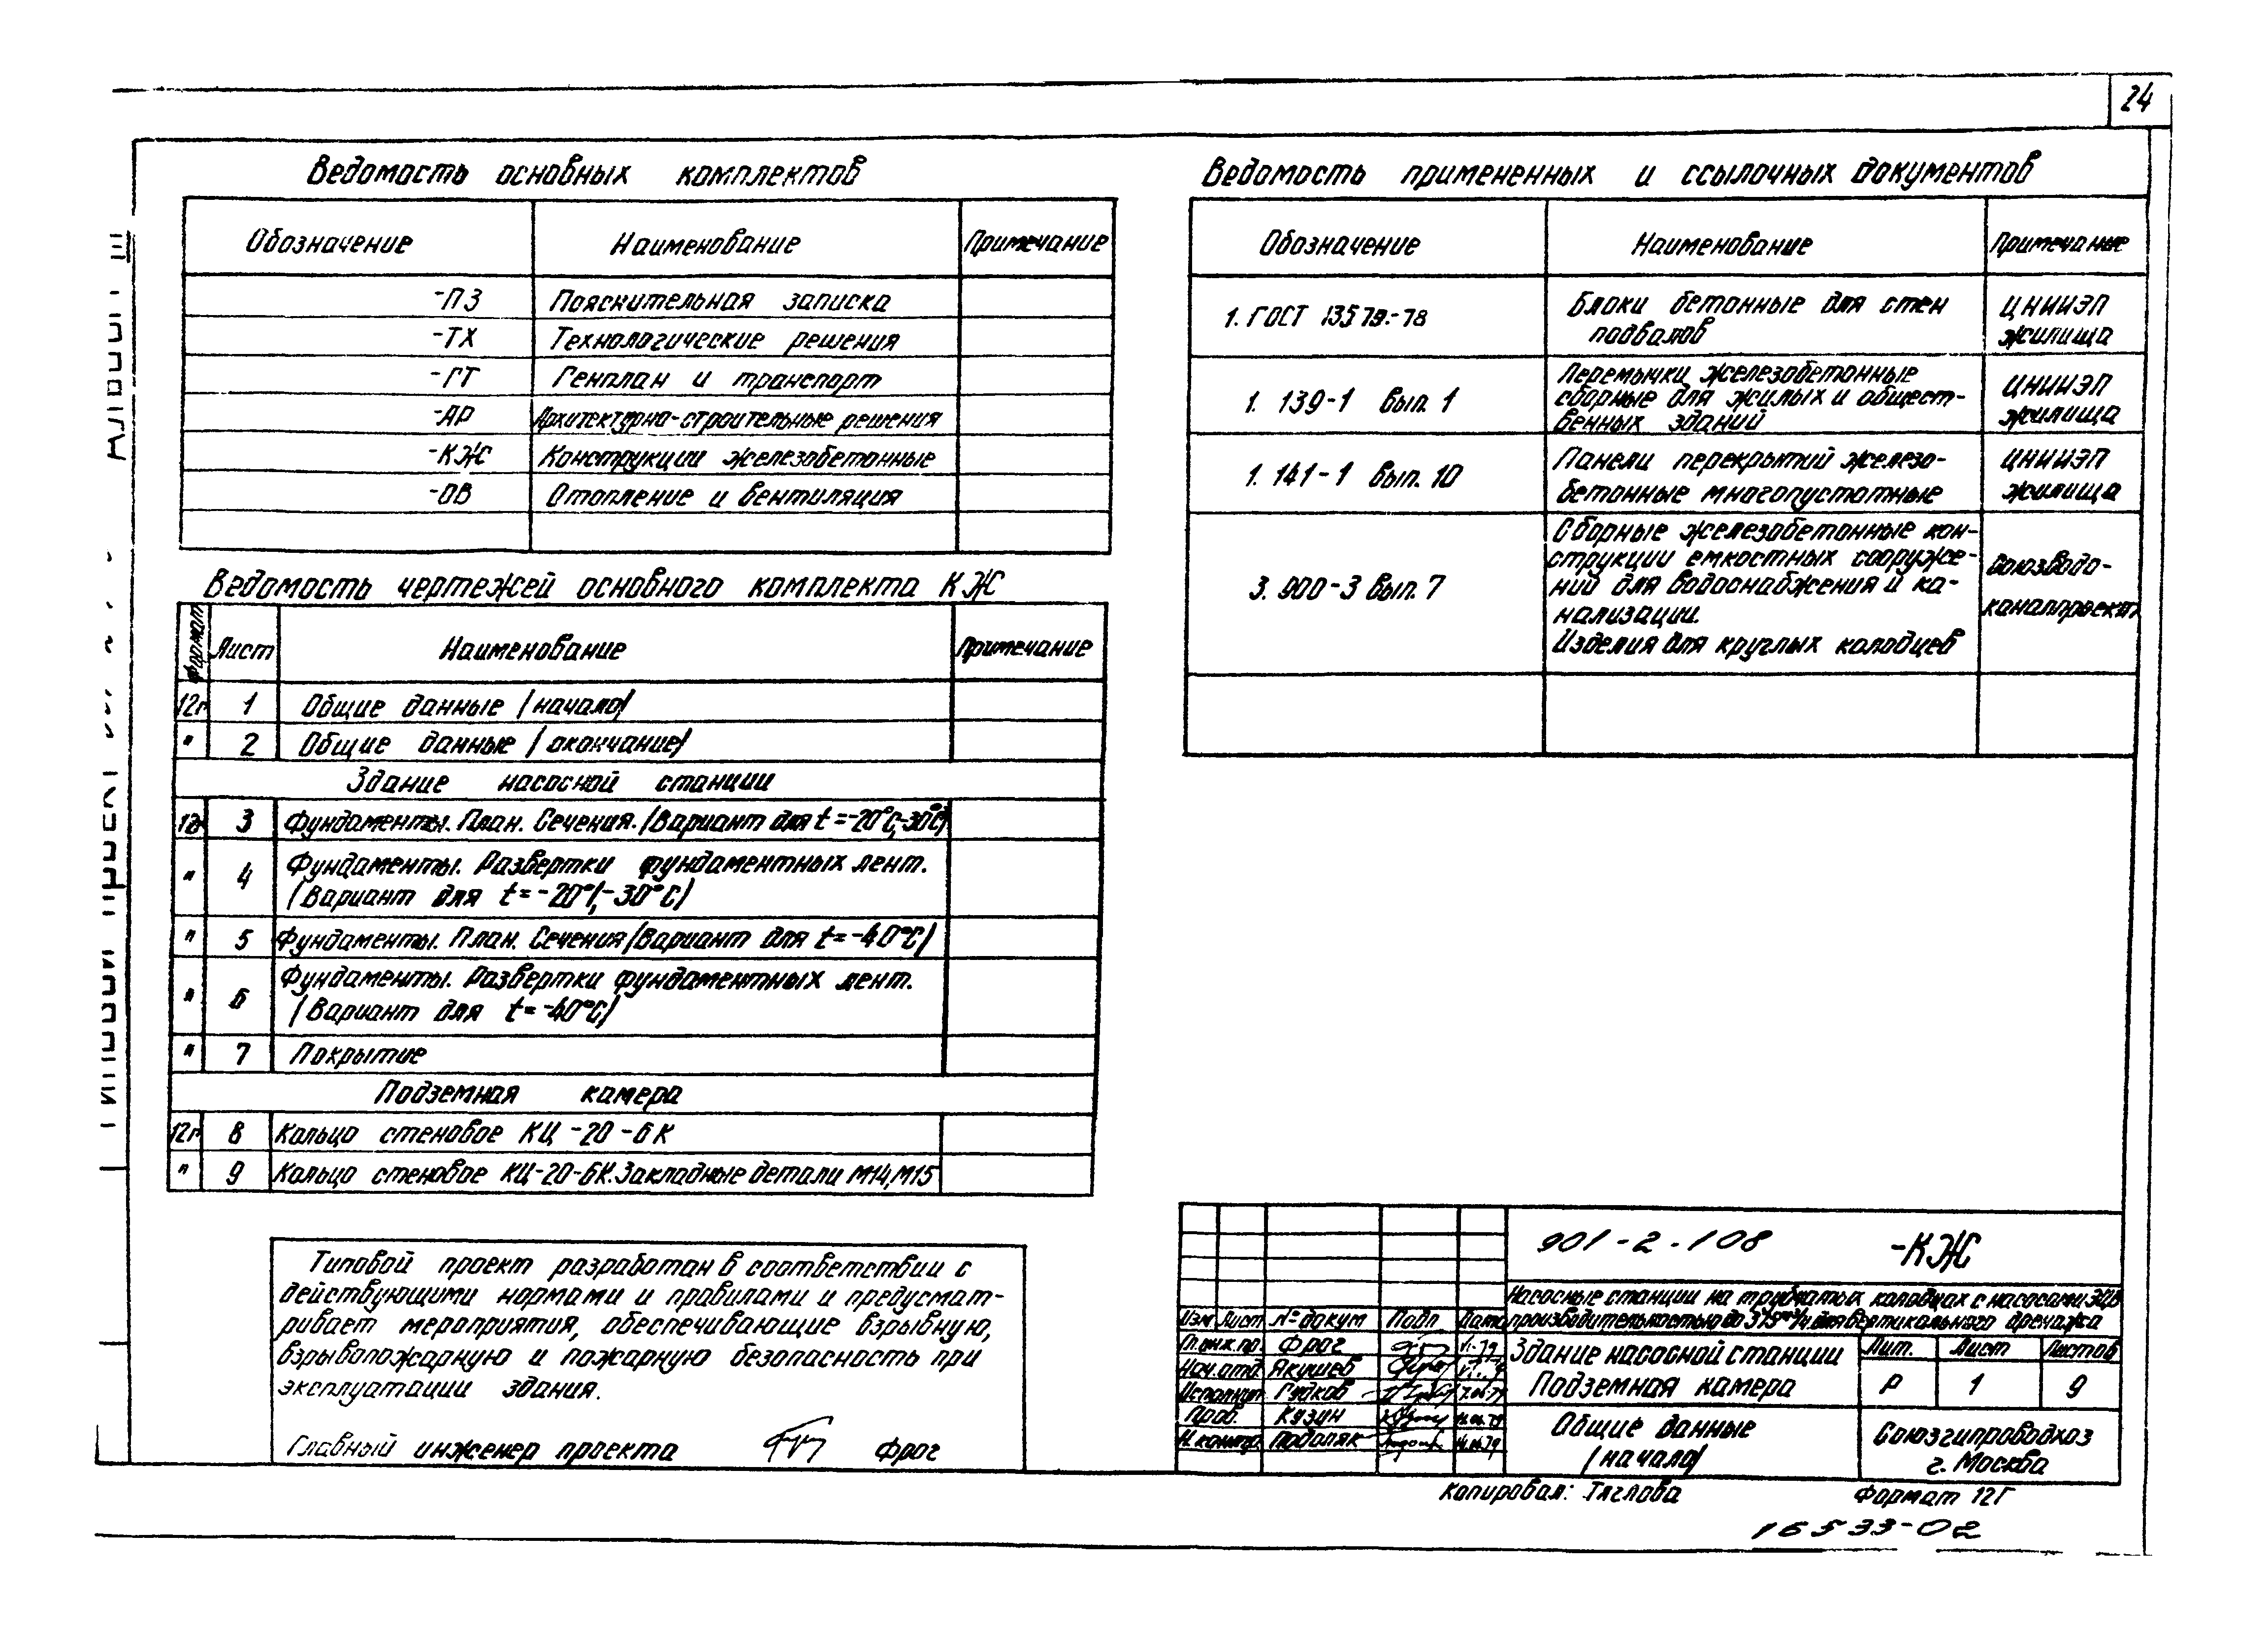 24
Ведомость основных комплектов
Обозначение Наименование Примечание
-ПЗ Пояснительная записка
-ТХ Технологические решения
-ГТ Генплан и транспорт
-АР Архитектурно-строительные решения
-КЖ Конструкции железобетонные
-ОВ Отопление и вентиляция
Ведомость чертежей основного комплекта КЖ
Формат Лист Наименование Примечание
12г 1 Общие данные /начало/
" 2 Общие данные /окончание/
Здание насосной станции
12г 3 Фундаменты. План. Сечения. /Вариант для t=-20°С,-30°С/
" 4 Фундаменты. Развертки фундаментных лент.
/Вариант для t=-20°,-30°С/
" 5 Фундаменты. План. Сечения /Вариант для t=-40°С/
" 6 Фундаменты. Развертки фундаментных лент.
/Вариант для t=-40°С/
" 7 Покрытие
Подземная камера
12г 8 Кольцо стеновое КЦ-20-6К
" 9 Кольцо стеновое КЦ-20-6К. Закладные детали М14, М15
Типовой проект разработан в соответствии с
действующими нормами и правилами и предусмат-
ривает мероприятия, обеспечивающие взрывную,
взрывопожарную и пожарную безопасность при
эксплуатации здания.
Главный инженер проекта Фрог
Ведомость примененных и ссылочных документов
Обозначение Наименование Примечание
1. ГОСТ 13579.-78
Блоки бетонные для стен
подвалов
ЦНИИЭП
жилища
1. 139-1 вып. 1
Перемычки железобетонные
сборные для жилых и общест-
венных зданий
ЦНИИЭП
жилища
1. 141-1 вып. 10
Панели перекрытий железо-
бетонные многопустотные
ЦНИИЭП
жилища
3. 900-3 вып. 7
Сборные железобетонные кон-
струкции емкостных сооруже-
ний для водоснабжения и ка-
нализации.
Изделия для круглых колодцев
Союзводо-
каналпроект
901-2-108 -КЖ
Насосные станции на трубчатых колодцах с насосами ЭЦВ
производительностью до 375 м³/ч для вертикального дренажа
Изм Лист №докум Подп Дата
Гл.инж.пр. Фрог
Нач.отд. Якушев
Исполнит. Гудков
Пров. Кязун
Н.контр. Подоляк
Здание насосной станции
Подземная камера
Лит. Лист Листов
Р 1 9
Общие данные
/начало/
Союзгипроводхоз
г. Москва
Копировал: Тяглова Формат 12Г
16533-02